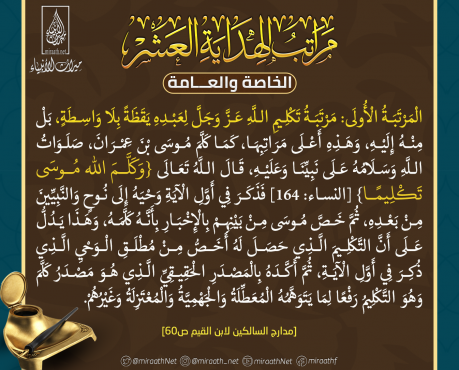 مراتب الهداية العشر
ميراث الأنبياء
miraath.net
الخاصة والعـــامة
الْمَرْتَبَةُ الْأُولَى: مَرْتَبَةُ تَكْلِيمِ اللَّهِ عَزَّ وَجَلَّ لِعَبْدِهِ يَقَظَةً بِلَا وَاسِطَةٍ، بَلْ
مِنْهُ إِلَيْهِ، وَهَذِهِ أَعْلَى مَرَاتِبِهَا، كَمَا كَلَّمَ مُوسَى بْنَ عِمْرَانَ، صَلَوَاتُ
اللَّهِ وَسَلَامُهُ عَلَى نَبِيِّنَا وَعَلَيْهِ، قَالَ اللَّهُ تَعَالَى {وَكَلَّمَ اللَّهُ مُوسَى
تَكْلِيمًا} [النساء: 164] فَذَكَرَ فِي أَوَّلِ الْآيَةِ وَحْيَهُ إِلَى نُوحٍ وَالنَّبِيِّينَ
مِنْ بَعْدِهِ، ثُمَّ خَصَّ مُوسَى مِنْ بَيْنِهِمْ بِالْإِخْبَارِ بِأَنَّهُ كَلَّمَهُ، وَهَذَا يَدُلُّ
عَلَى أَنَّ التَّكْلِيمَ الَّذِي حَصَلَ لَهُ أَخَصُّ مِنْ مُطْلَقِ الْوَحْيِ الَّذِي
ذُكِرَ فِي أَوَّلِ الْآيَةِ، ثُمَّ أَكَّدَهُ بِالْمَصْدَرِ الْحَقِيقِيِّ الَّذِي هُوَ مَصْدَرُ كَلَّمَ
وَهُوَ التَّكْلِيمُ رَفْعًا لِمَا يَتَوَهَّمُهُ الْمُعَطِّلَةُ وَالْجَهْمِيَّةُ وَالْمُعْتَزِلَةُ وَغَيْرُهُمْ.
[مدارج السالكين لابن القيم ص60]
@miraathNet @miraath_net miraathNet miraathf